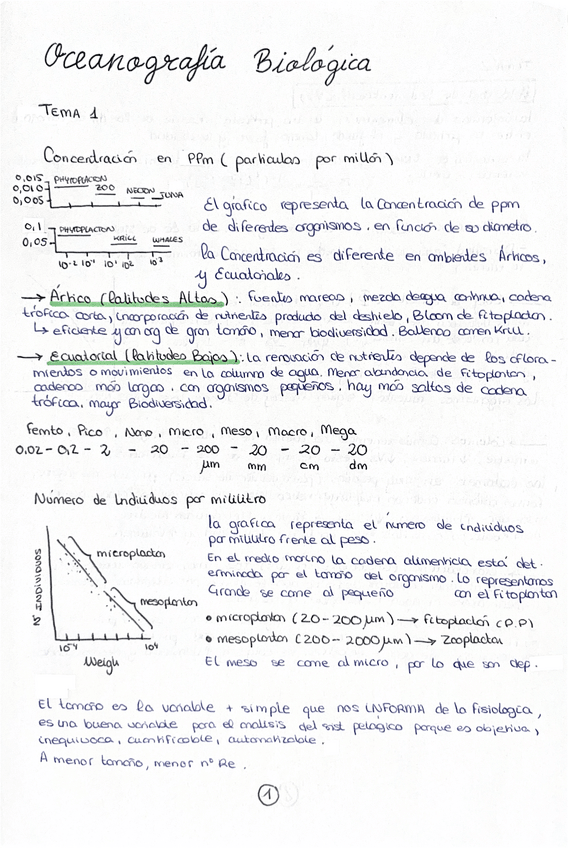 Oceanografía Biológica
TEMA 1
Concentración en PPm (particulas por millón)
0,015
0,010
0,005
PHYTOPLACTON
ZOO
NECTON
TUNA
0,1
0,05
PHYTOPLACTON
KRILL
WHALES
10⁻² 10⁻¹ 10¹ 10² 10³
El gráfico representa la Concentración de ppm
de diferedes organismos. en función de su diametro.
la Concentración es diferente en ambiedes Árticos,
y Ecuatoriales.
→ Ártico (Latitudes Altas): Fuentes mareas, mezcla deagua continua, cadena
trófica corta, incorporación de nutrientes producto del deshielo, Bloom de fitoplacton.
↳ eficiente y con org de gran tamaño, menor biodiversidad. Ballenas comen Krill.
→ Ecuatorial (Latitudes Bajas): la renovación de nutrientes depende de los aflora-
mientos o movimientos en la columna de agua, Menor abundancia de Fitoplanton,
cadenas más largas. con organismos pequeños. hay más saltos de cadena
trófica. mayor Biodiversidad.
Femto, Pico, Nano, micro, Meso, Macro, Mega
0.02 - 0,2 - 2 - 20 - 200 - 20 - 20 - 20
μm mm cm dm
Número de Individuos por mililitro
la grafica representa el numero de individuos
por mililitro frente al peso.
En el medio marino la cadena alimenticia está det.
erminada por el tamaño del organismo. lo representamos
Grande se come al pequeño con el fitoplanton
• microplanton (20-200 μm) → Fitoplacton (P.P)
• mesoplanton (200-2000 μm) → Zooplacton
El meso se come al micro, por lo que son dep.
microplacton
mesoplanton
10⁻⁴ 10⁴
Weigh
El tamaño es la variable + simple que nos INFORMA de la fisiologica,
es una buena variable para el analisis del sist pelágico porque es objetiva,
inequivoca, cuantificable, automatizable.
A menor tamaño, menor nº Re.
1